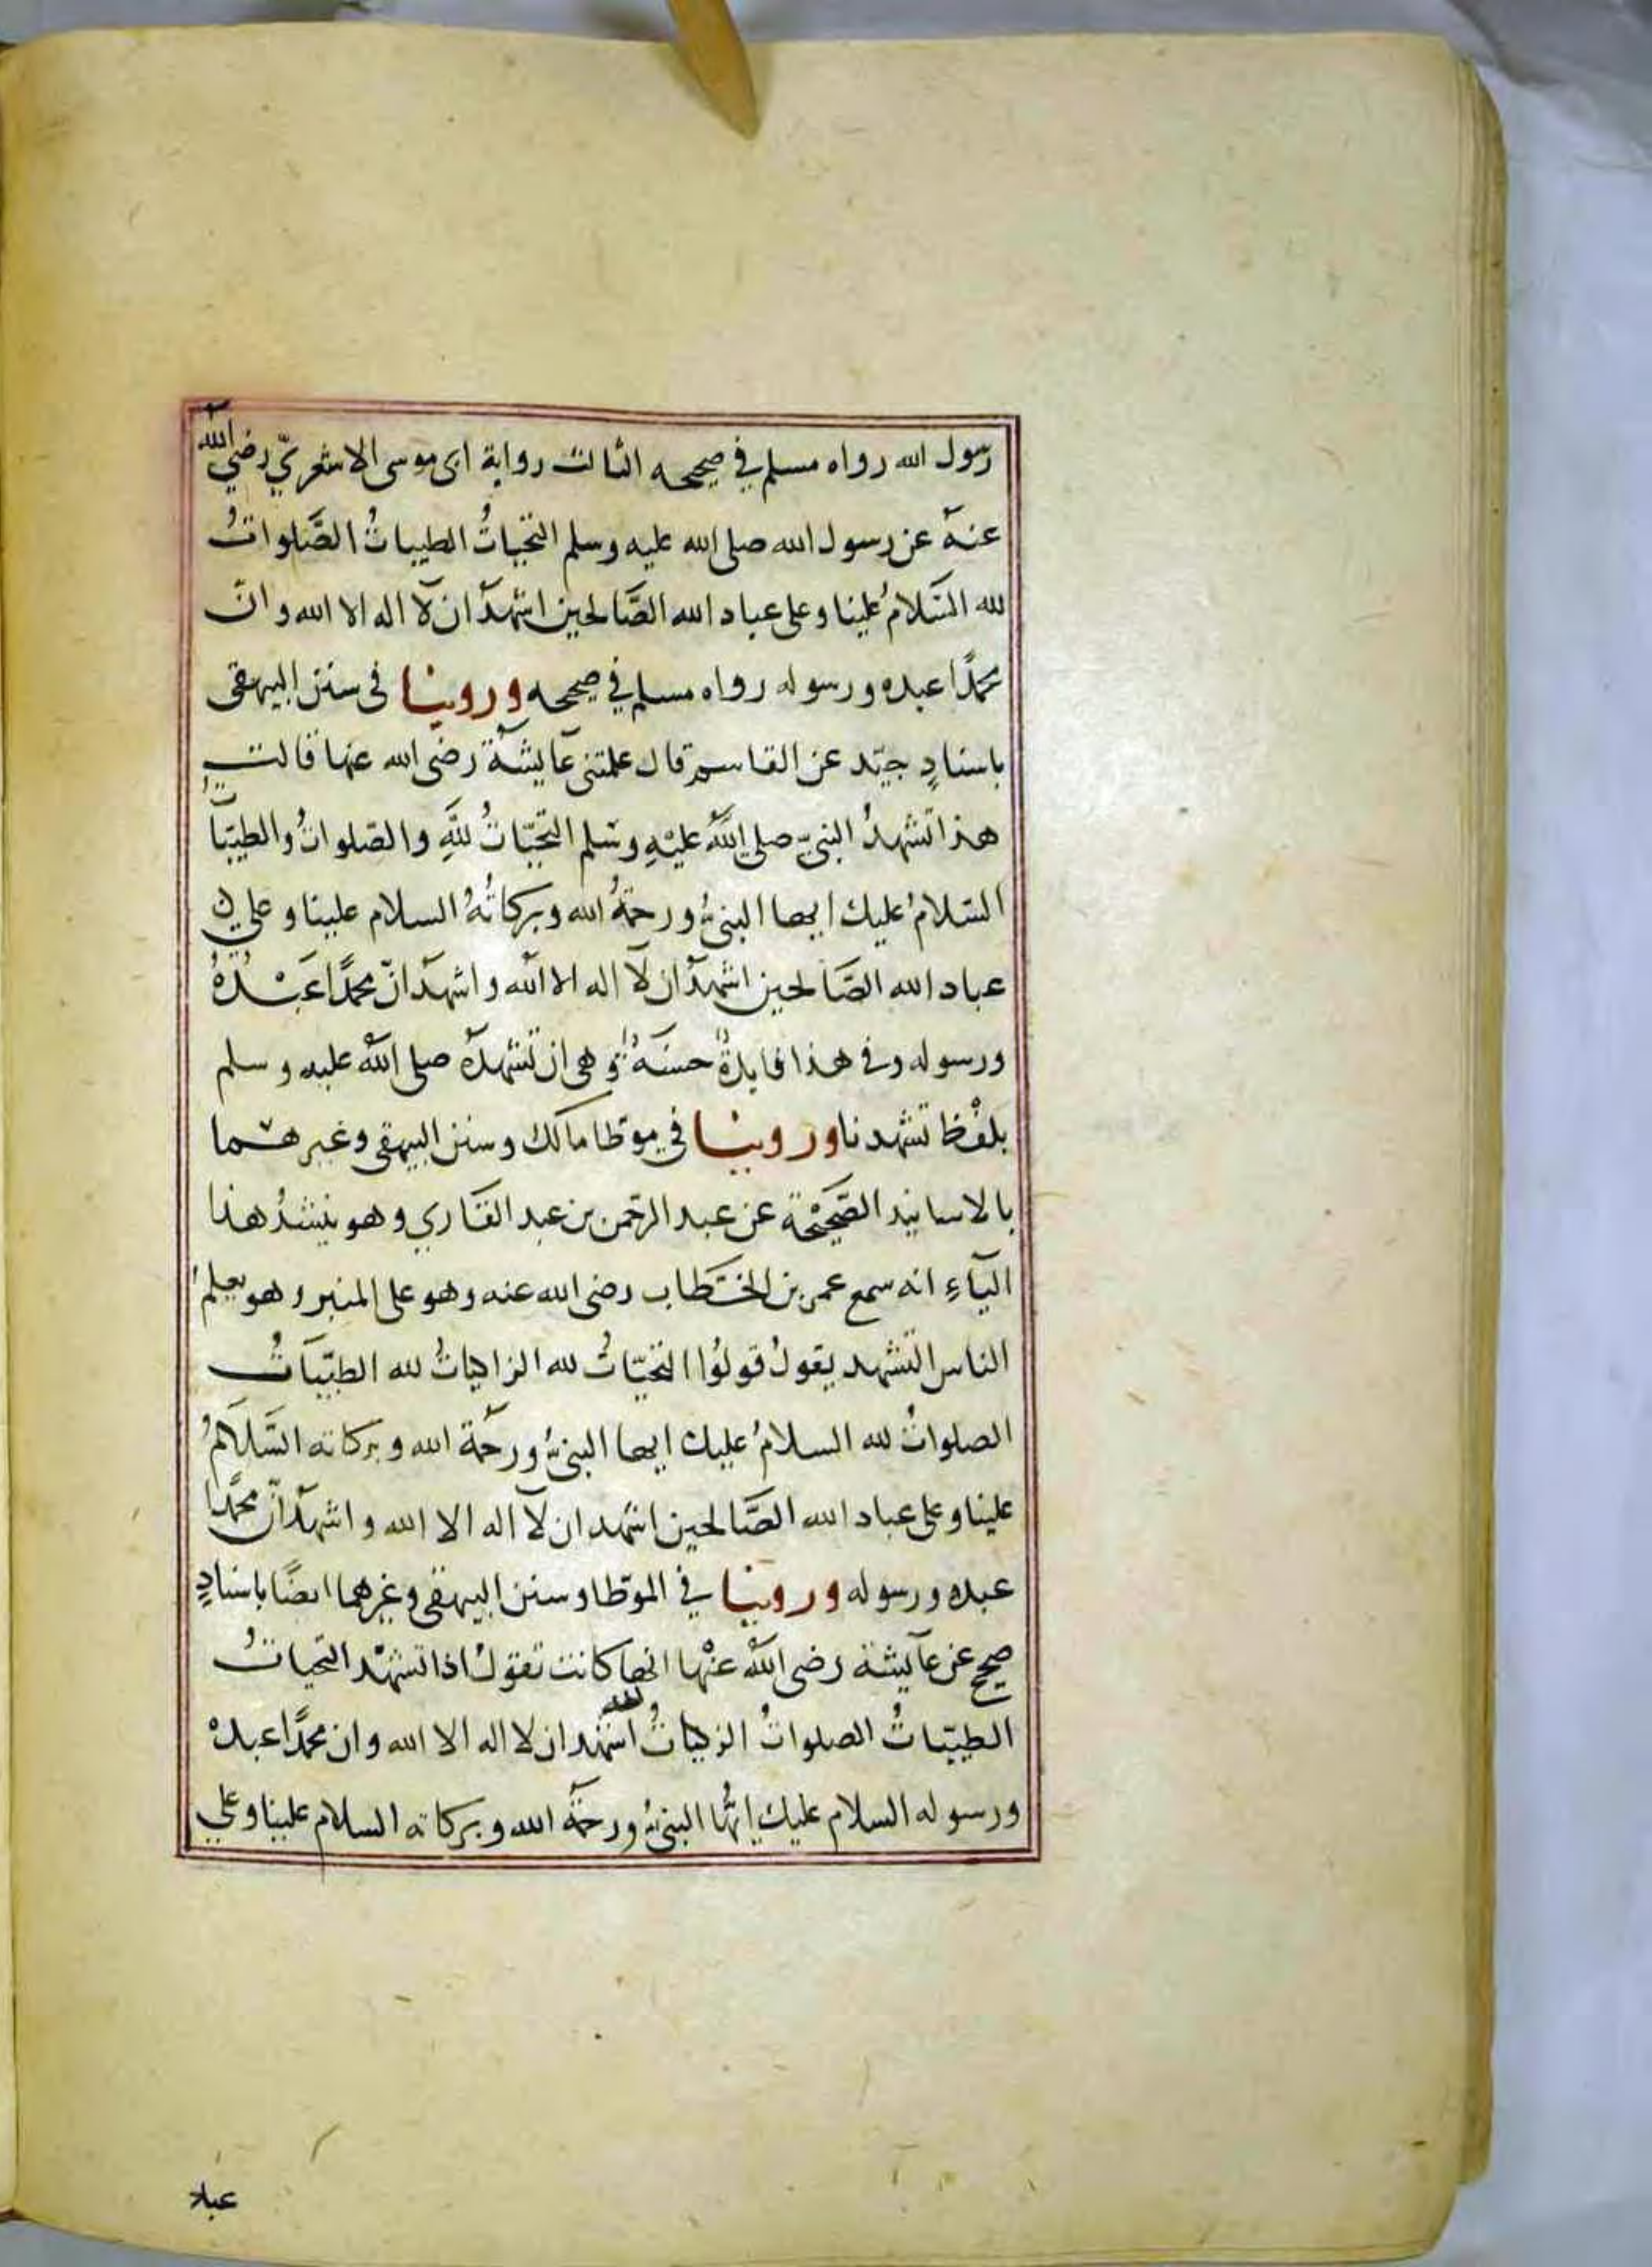 رسول الله رواه مسلم في صحيحه الثالث رواية ابى موسى الاشعريّ رضي الله
عنه عن رسول الله صلى الله عليه وسلم التحياتُ الطيباتُ الصَّلواتُ
لله السَّلامُ علينا وعلى عباد الله الصَّالحين اشهد ان لآ اله الا الله وانّ
محمدًا عبده ورسوله رواه مسلم في صحيحه وروينا فى سنن البيهقى
باسنادٍ جيّد عن القاسم قال علمتنى عآيشة رضى الله عنها قالت
هذا تشهدُ النبيّ صلى اللّٰه عليْهِ وسَلم التحيّاتُ للّٰهِ والصلواتُ والطيّباتُ
السّلامُ عليك ايها النبىُّ ورحمةُ الله وبركاتُهُ السلام علينا وعلى
عباد الله الصَّالحين اشهد ان لآ اله الا الله واشهد انّ محمدًا عَبْدُهُ
ورسوله وفى هذا فايدةٌ حسنَةٌ وهى ان تشهدهُ صلى الله عليه وسلم
بلفْظ تشهدنا وروينا في موطا مالك وسنن البيهقى وغيرهما
بالاسانيد الصَّحيْحَة عن عبد الرحمن بن عبد القَاري وهو بتشدُ هذا
اليآءِ انه سمع عمر بن الخَطاب رضى الله عنه وهو على المنبر وهو يعلمُ
الناس التشهد يقولُ قولُوا التحيّاتُ لله الزاكياتُ لله الطيّباتُ
الصلواتُ لله السلامُ عليك ايها النبىُّ ورحمة الله وبركاته السَّلَامُ
علينا وعلى عباد الله الصَّالحين اشهد ان لآ اله الا الله واشهد انّ محمدًا
عبده ورسوله وروينا في الموطا وسنن البيهقى وغيرهما ايضًا باسنادٍ
صحيح عن عآيشة رضى الله عنْها انها كانت تقولُ اذا تشهّد التحياتُ
الطيّباتُ الصلواتُ الزكياتُ لله اشهد ان لا اله الا الله وان محمدًا عبدهُ
ورسوله السلام عليك ايُّها النبىُّ ورحمَة الله وبركاته السلام علينا وعلى
عباد